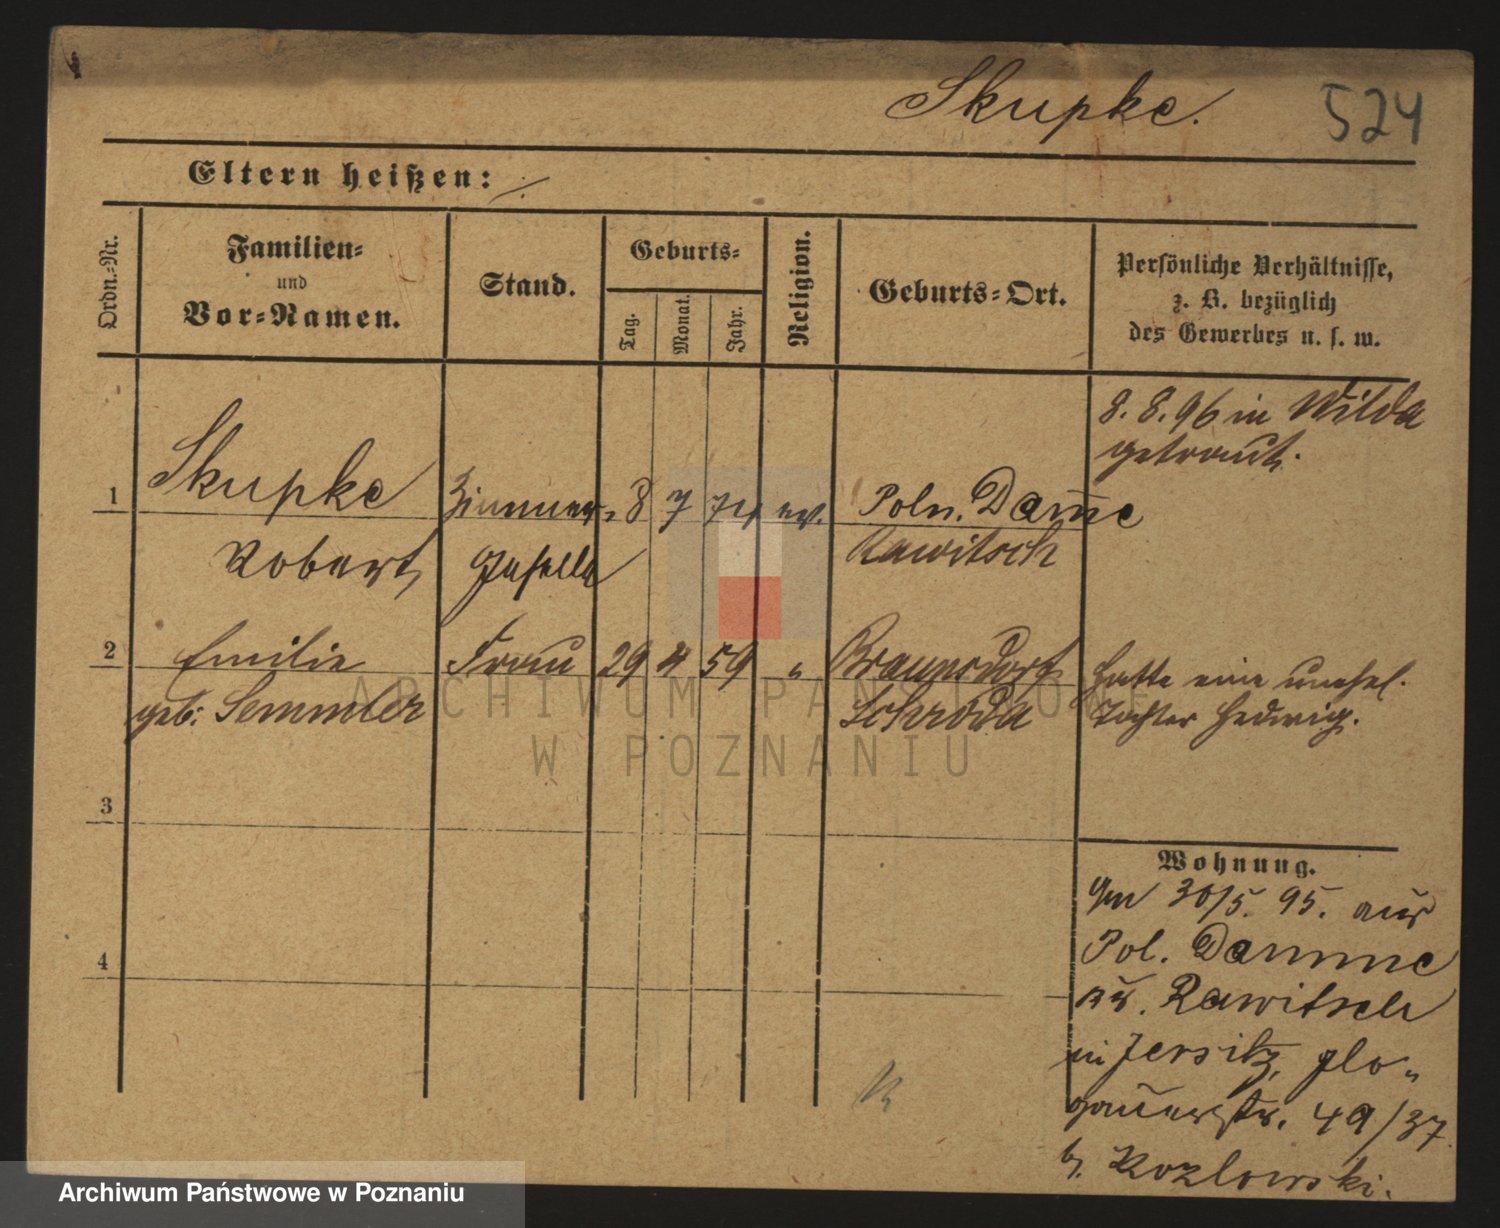 Skupke. 524
Eltern heißen:
Ordn.-Nr.
Familien-
und
Vor-Namen.
Stand.
Geburts-
Tag.
Monat.
Jahr.
Religion.
Geburts-Ort.
Persönliche Verhältnisse,
z. B. bezüglich
des Gewerbes u. s. w.
8. 8. 96 in Wilda
getraut.
1 Skupke Zimmer- 8 7 74 ev. Poln. Dam̄e
Robert Geselle Rawitsch
2 Emilie Frau 29 4 59 " Braunsdorf
geb: Semmler Schroda
Hatte eine unehel.
Tochter Hedwig.
3
Wohnung.
Am 30/5. 95. aus
Pol. Damme
Kr. Rawitsch
in Jersitz, Glo-
gauerstr. 49/37
b. Kozlowski.
4
ARCHIWUM PAŃSTWOWE
W POZNANIU
Archiwum Państwowe w Poznaniu